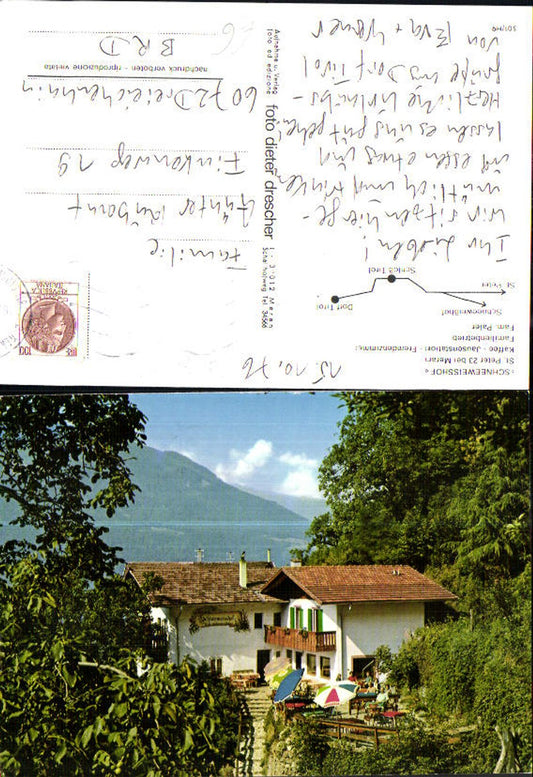 »SCHNEEWEISSHOF«
St. Peter 23 bei Meran
Kaffee - Jausenstation - Fremdenzimmer
Familienbetrieb
Fam. Paler
Schneeweißhof
Dorf Tirol
Schloß Tirol
St. Peter
15.10.76
Ihr Lieben!
Wir sitzen hier ge-
mütlich und trinken
und essen etwas und
lassen es uns gut gehen.
Herzliche Urlaubs-
grüße aus Dorf Tirol
von Eva + Werner
501/HQ
Aufnahme u. Verlag
foto ed edizione
foto dieter drescher
I - 39012 Meran
Tel. 34566
Familie
Günter
Finkenweg 19
6072 Dreieichenhain
nachdruck verboten - riproduzione vietata
BRD
100